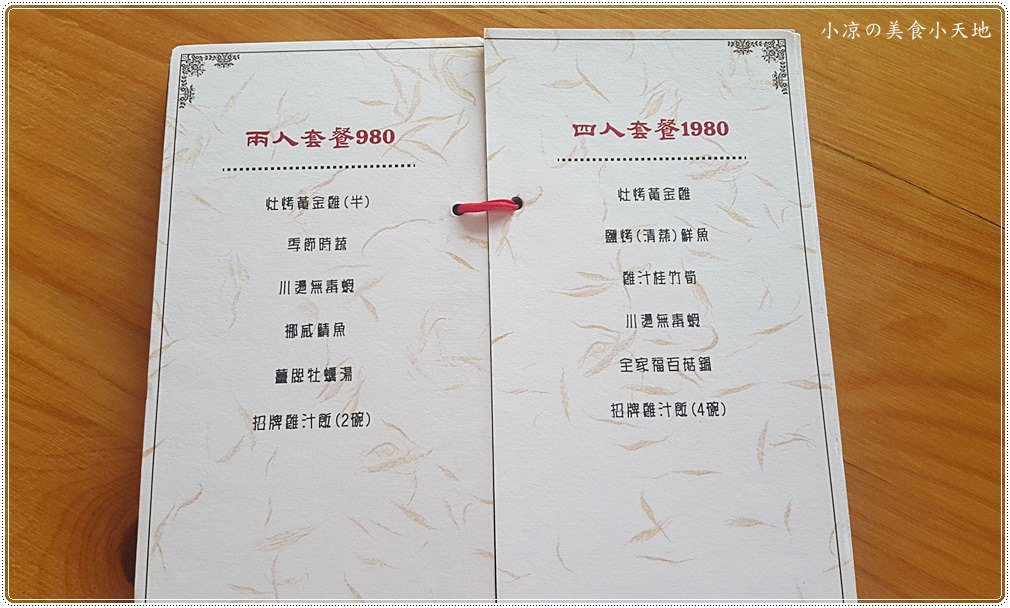 小凉の美食小天地
兩人套餐980
灶烤黃金雞(半)
季節時蔬
川燙無毒蝦
挪威鯖魚
薑絲牡蠣湯
招牌雞汁飯(2碗)
四人套餐1980
灶烤黃金雞
鹽烤(清蒸)鮮魚
雞汁桂竹筍
川燙無毒蝦
全家福百菇鍋
招牌雞汁飯(4碗)